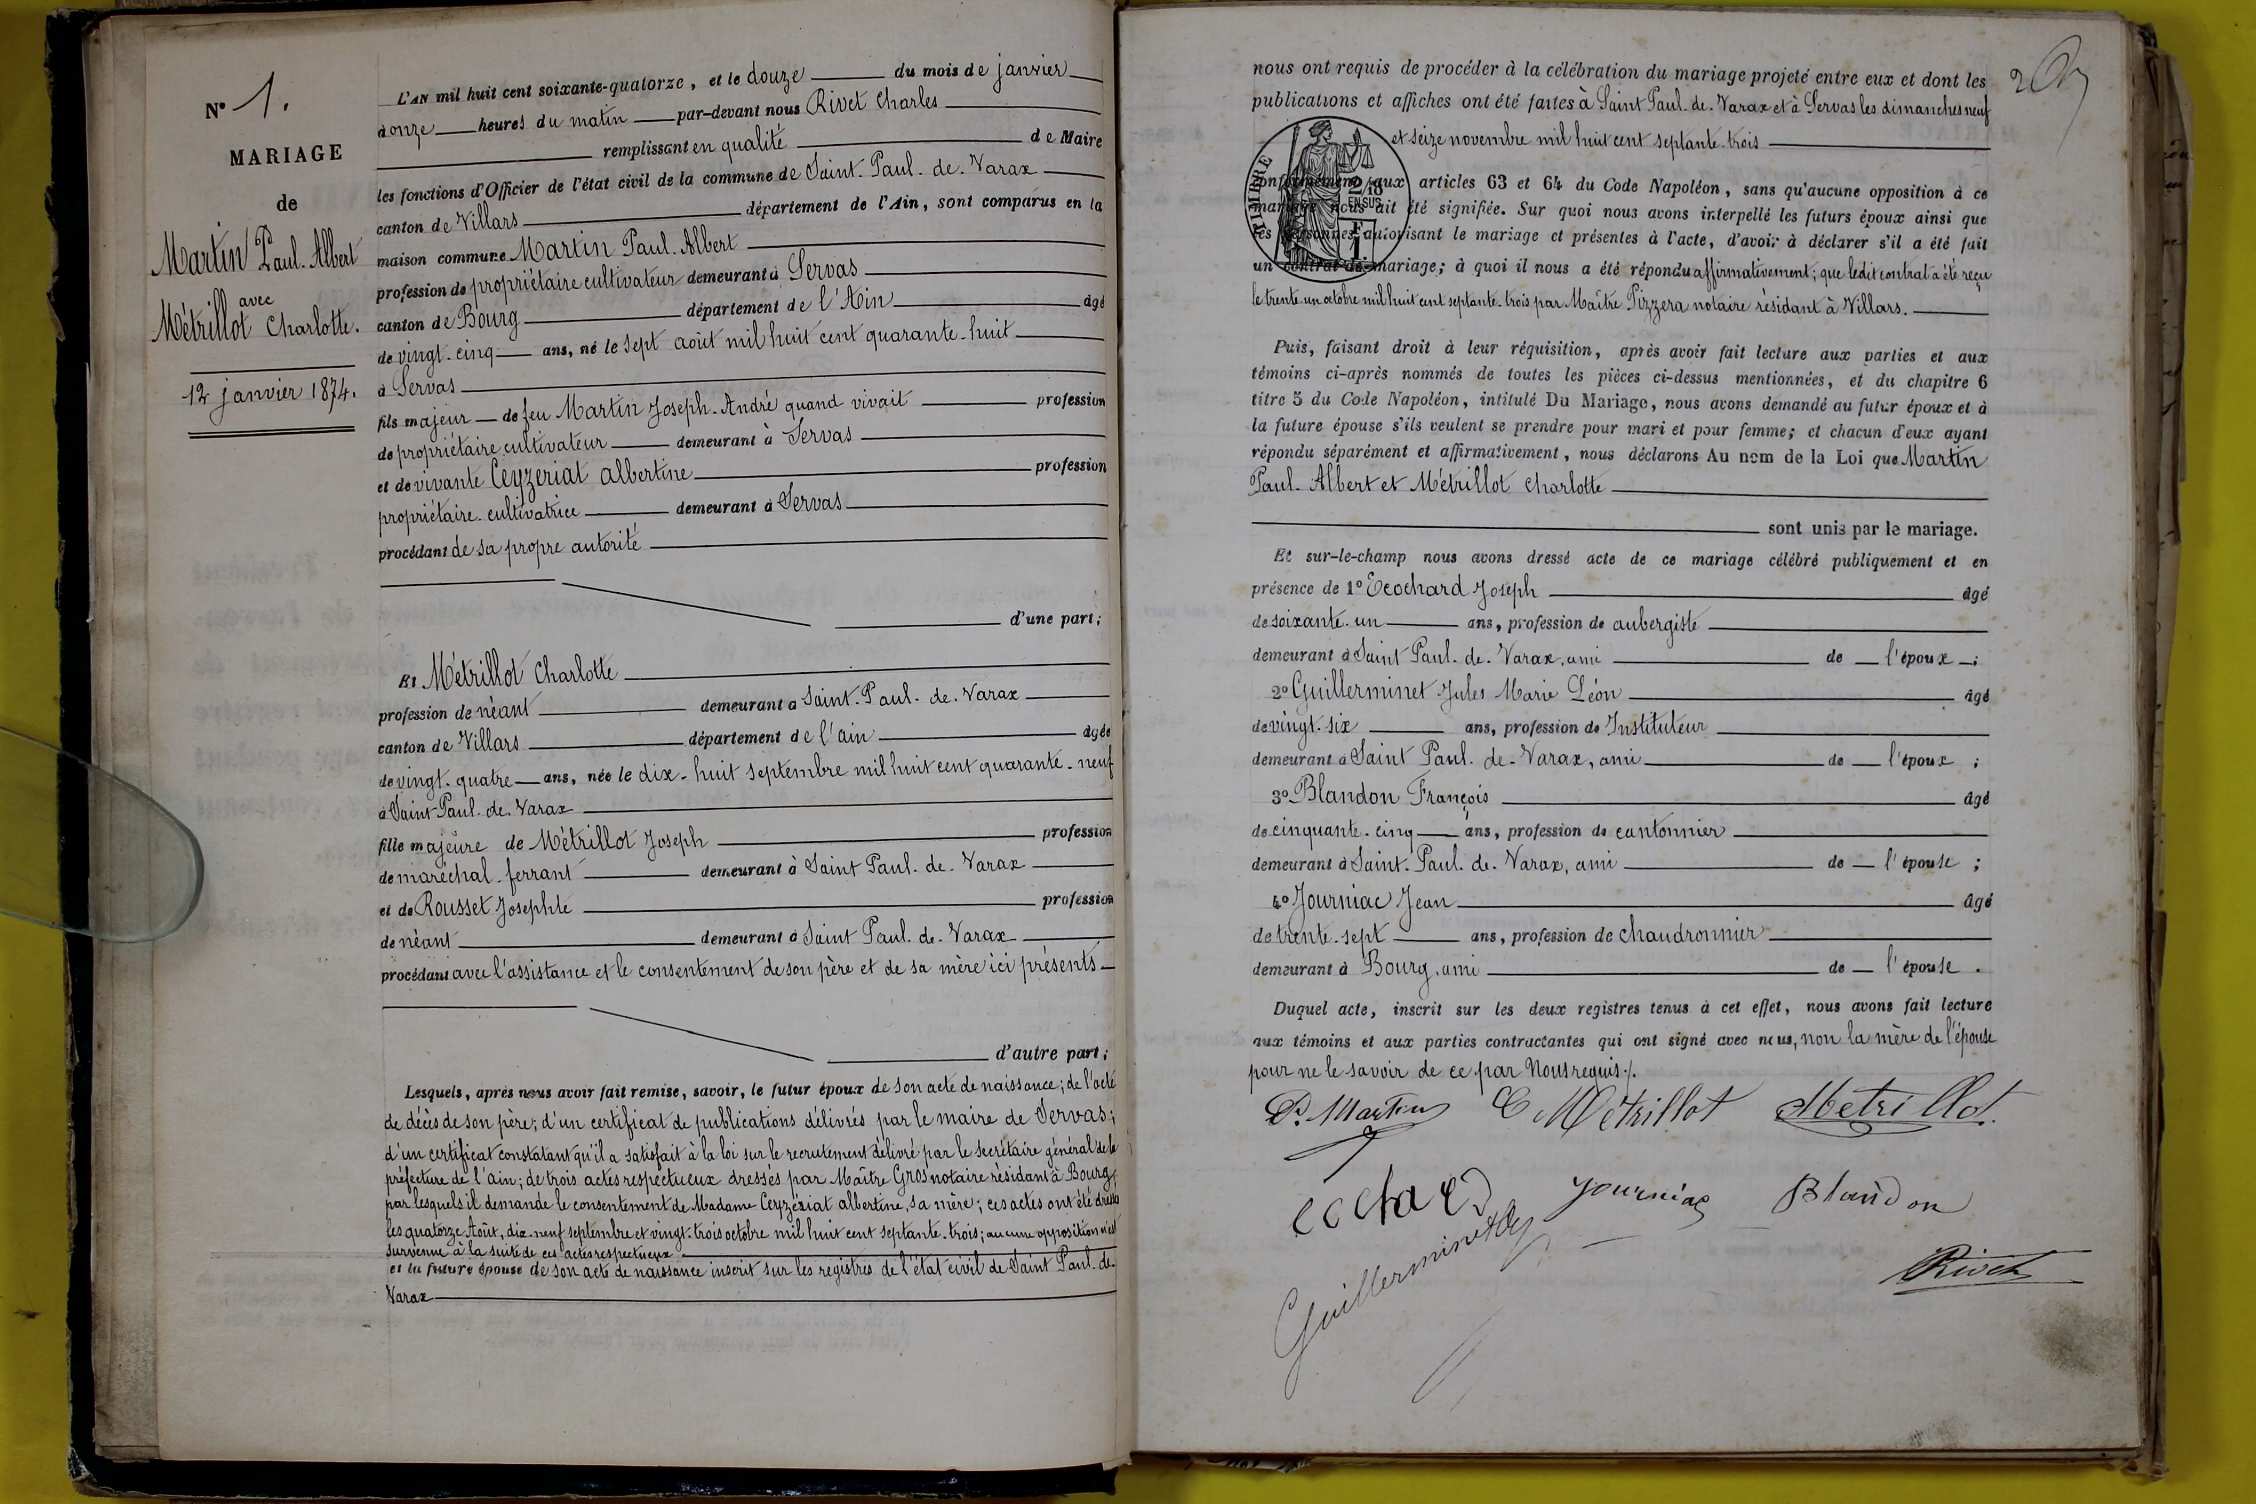 N° 1.
MARIAGE
de
Martin Paul-Albert
avec
Métrillot Charlotte.
12 janvier 1874.
L'AN mil huit cent soixante-quatorze, et le douze du mois de janvier
à onze heures du matin par-devant nous Rivet Charles
remplissant en qualité de Maire
les fonctions d'Officier de l'état civil de la commune de Saint-Paul-de-Varax
canton de Villars département de l'Ain, sont comparus en la
maison commune Martin Paul-Albert
profession de propriétaire cultivateur demeurant à Servas
canton de Bourg département de l'Ain âgé
de vingt-cinq ans, né le sept août mil huit cent quarante-huit
à Servas
fils majeur de feu Martin Joseph-André quand vivait profession
de propriétaire cultivateur demeurant à Servas
et de vivante Ceyzeriat albertine profession
propriétaire-cultivatrice demeurant à Servas
procédant de sa propre autorité
d'une part;
Et Métrillot Charlotte
profession de néant demeurant à Saint-Paul-de-Varax
canton de Villars département de l'ain âgée
de vingt-quatre ans, née le dix-huit septembre mil huit cent quarante-neuf
à Saint-Paul-de-Varax
fille majeure de Métrillot Joseph profession
de maréchal-ferrant demeurant à Saint Paul-de-Varax
et de Rousset Josephte profession
de néant demeurant à Saint Paul-de-Varax
procédant avec l'assistance et le consentement de son père et de sa mère ici présents
d'autre part;
Lesquels, après nous avoir fait remise, savoir, le futur époux de son acte de naissance; de l'acte
de décès de son père; d'un certificat de publications délivrés par le maire de Servas;
d'un certificat constatant qu'il a satisfait à la loi sur le recrutement délivré par le secrétaire général de la
préfecture de l'ain; de trois actes respectueux dressés par Maître Gros notaire résidant à Bourg,
par lesquels il demande le consentement de Madame Ceyzériat albertine, sa mère; ces actes ont été dressés
les quatorze Août, dix-neuf septembre et vingt-trois octobre mil huit cent septante-trois; aucune opposition n'est
survenue à la suite de ces actes respectueux
et la future épouse de son acte de naissance inscrit sur les registres de l'état civil de Saint Paul-de-
Varax
nous ont requis de procéder à la célébration du mariage projeté entre eux et dont les
publications et affiches ont été faites à Saint Paul-de-Varax et à Servas les dimanches neuf
et seize novembre mil huit cent septante-trois
TIMBRE
2/10
EN SUS
1 F
conformément aux articles 63 et 64 du Code Napoléon, sans qu'aucune opposition à ce
mariage nous ait été signifiée. Sur quoi nous avons interpellé les futurs époux ainsi que
les personnes autorisant le mariage et présentes à l'acte, d'avoir à déclarer s'il a été fait
un contrat de mariage; à quoi il nous a été répondu affirmativement; que ledit contrat a été reçu
le trente-un octobre mil huit cent septante-trois par Maître Pizzera notaire résidant à Villars.
Puis, faisant droit à leur réquisition, après avoir fait lecture aux parties et aux
témoins ci-après nommés de toutes les pièces ci-dessus mentionnées, et du chapitre 6
titre 5 du Code Napoléon, intitulé Du Mariage, nous avons demandé au futur époux et à
la future épouse s'ils veulent se prendre pour mari et pour femme; et chacun d'eux ayant
répondu séparément et affirmativement, nous déclarons Au nom de la Loi que Martin
Paul-Albert et Métrillot Charlotte
sont unis par le mariage.
Et sur-le-champ nous avons dressé acte de ce mariage célébré publiquement et en
présence de 1° Ecochard Joseph âgé
de soixante-un ans, profession de aubergiste
demeurant à Saint Paul-de-Varax, ami de l'époux ;
2° Guillerminet Jules Marie Léon âgé
de vingt-six ans, profession de Instituteur
demeurant à Saint Paul-de-Varax, ami de l'époux ;
3° Blandon François âgé
de cinquante-cinq ans, profession de cantonnier
demeurant à Saint-Paul-de-Varax, ami de l'épouse ;
4° Journiac Jean âgé
de trente-sept ans, profession de chaudronnier
demeurant à Bourg, ami de l'épouse .
Duquel acte, inscrit sur les deux registres tenus à cet effet, nous avons fait lecture
aux témoins et aux parties contractantes qui ont signé avec nous, non la mère de l'épouse
pour ne le savoir de ce par Nous requis./.
P. Martin C Métrillot Métrillot
ecochard Journiac Blandon
Guillerminet
Rivet